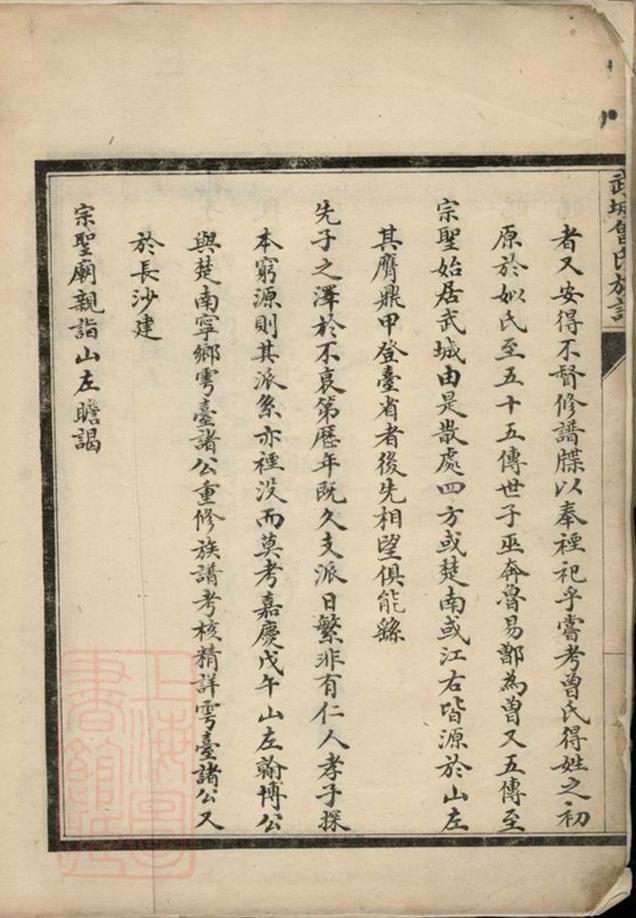 武城曾氏族譜
者又安得不督修譜牒以奉禋祀乎嘗考曾氏得姓之初
原於姒氏至五十五傳世子巫奔魯易鄫為曾又五傳至
宗聖始居武城由是散處四方或楚南或江右皆源於山左
其膺鼎甲登臺省者後先相望俱能緜
先子之澤於不衰第歷年既久支派日繁非有仁人孝子探
本窮源則其派系亦禋没而莫考嘉慶戊午山左翰博公
與楚南寧鄉雩臺諸公重修族譜考核精詳雩臺諸公又
於長沙建
宗聖廟親詣山左瞻謁
上海圖書館藏